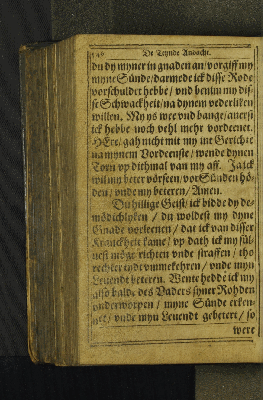 De Teynde Andacht.
du dy myner in gnaden an/ vorgiff my
myne Sünde/ darmede ick disse Rode
vorschuldet hebbe/ vnd benim my dis-
se Schwackheit/ na dynem vederliken
willen. My ys wee vnd bange/ auerst
ick hebbe noch vehl mehr vordeenet.
HEre/ gah nicht mit my int Gerichte
na mynem Vordeenste/ wende dynen
Torn yp ditmal van my aff. Ja ick
wil my beter vörseen/ vor Sünden hö-
den/ vnde my beteren/ Amen.
Du hillige Geist/ ick bidde dy de-
mödichlyken/ du woldest my dyne
Gnade vorleenen/ dat ick van disser
Kranckheit kame/ vp dath ick my sül-
uest möge richten vnde straffen/ tho
rechter tydt vmmekehren/ vnde myn
Leuendt beteren. Wente hedde ick my
also bald/ des Vaders syner Rohden
vnderworpen/ myne Sünde erken-
net/ vnde myn Leuendt gebetert/ so
were